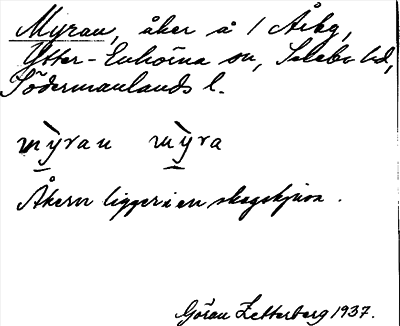 Myran, åker å 1 Åbg,
Ytter-Enhörna sn, Selebo hd,
Södermanlands l.
mỳran mỳra
Åkern ligger i en skogskjusa.
Göran Zetterberg 1937.